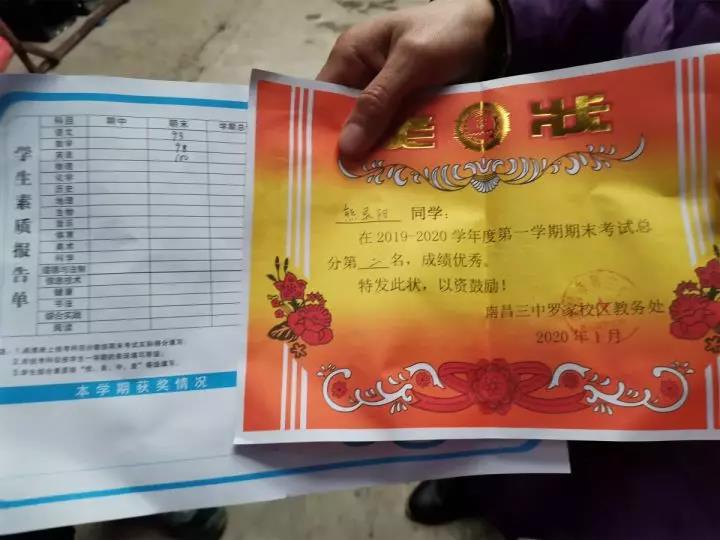 学生素质报告单
科目 期中 期末 学期总
语文 93
数学 98
英语 100
物理
化学
历史
地理
生物
音乐
体育
美术
科学
道德与法制
信息技术
健康
书法
综合实践
阅读
本学期获奖情况
奖状
同学:
在2019-2020学年度第一学期期末考试总
分第二名,成绩优秀。
特发此状,以资鼓励!
南昌三中罗家校区教务处
2020年1月